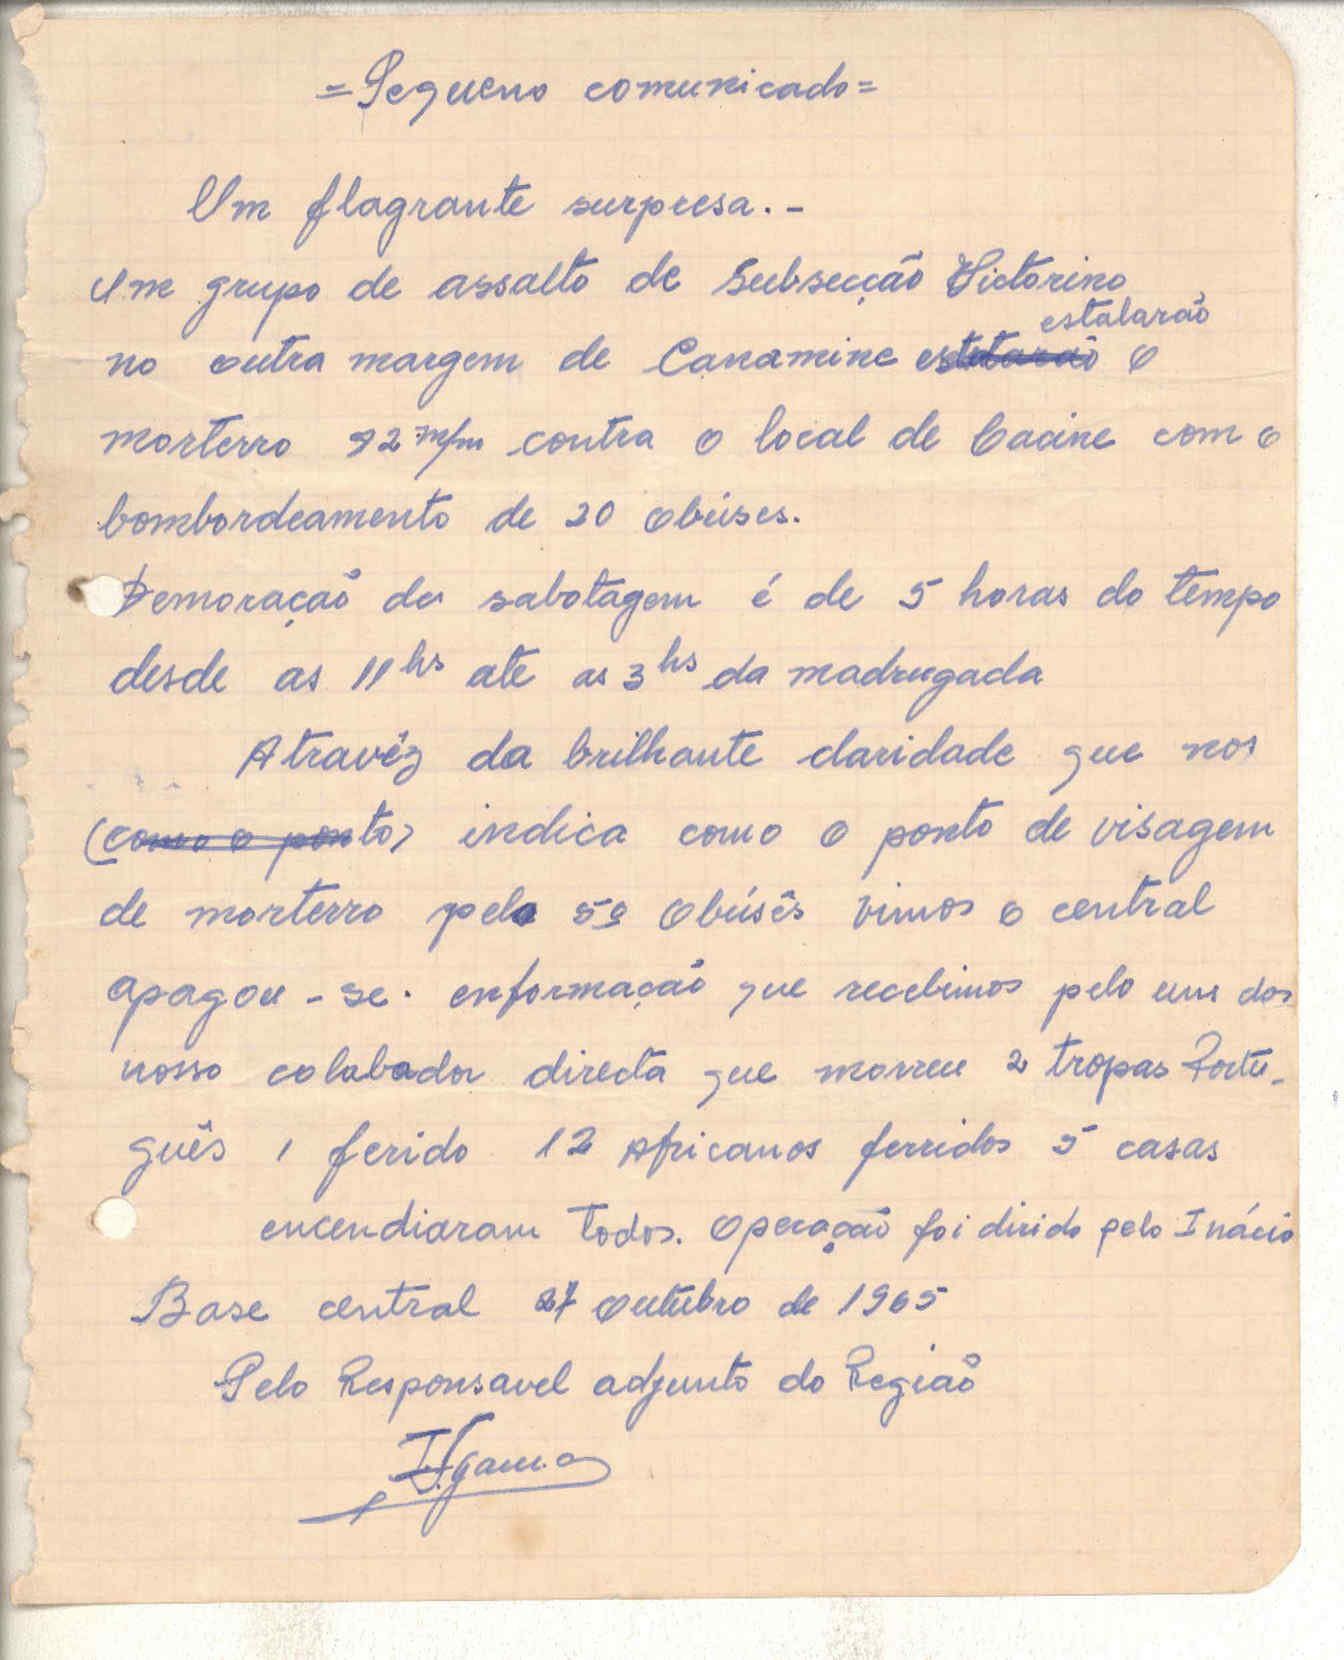 =Pequeno comunicado=
Um flagrante surpresa.-
Um grupo de assalto de Subsecção Victorino
estalarão
no outra margem de Canamine estetarão o
morterro 82 m/m contra o local de Cacine com o
bombordeamento de 20 obúses.
Demoração da sabotagem é de 5 horas do tempo
desde as 11hs ate as 3hs da madrugada
Atravéz da brilhante claridade que nos
(como o ponto) indica como o ponto de visagem
de morterro pelo 5º obúsês vimos o central
apagou-se. enformação que recebimos pelo um dos
nosso colabador directa que morreu 2 tropas Portu-
guês 1 ferido 12 Africanos ferridos 5 casas
encendiaram todos. Operação foi dirido pelo Inácio
Base central 27 outubro de 1965
Pelo Responsavel adjunto do Região